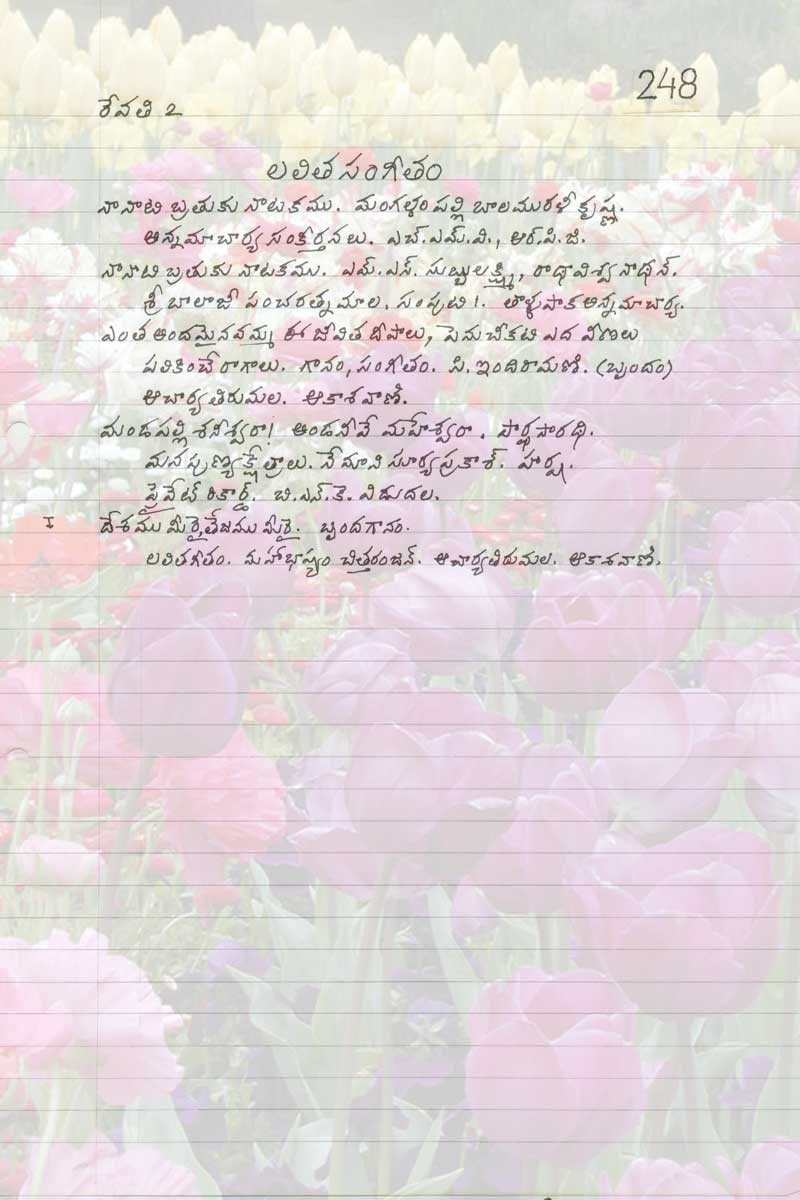 248
రేవతి 2
లలిత సంగీతం
నానాటి బ్రతుకు నాటకము. మంగళంపల్లి బాలమురళీ కృష్ణ.
అన్నమాచార్య సంకీర్తనలు. ఎచ్.ఎమ్.వి., ఆర్.పి.జి.
నానాటి బ్రతుకు నాటకము. ఎమ్.ఎస్. సుబ్బులక్ష్మి, రాధావిశ్వనాధన్.
శ్రీ బాలాజీ పంచరత్నమాల. సంపుటి 1. తాళ్లపాక అన్నమాచార్య.
ఎంత అందమైనవమ్మ ఈ జీవిత దీపాలు, పెనుచీకటి ఎద వీణలు
పలికించే రాగాలు. గానం, సంగీతం. పి. ఇందిరామణి. (బృందం)
ఆచార్య తిరుమల. ఆకాశవాణి.
మండపల్లి శనీశ్వరా! అండనీవే మహేశ్వరా. పార్థసారధి.
మన పుణ్యక్షేత్రాలు. నేమాని సూర్యప్రకాశ్. హర్ష.
ప్రైవేట్ రికార్డ్. బి.ఎన్.కె. విడుదల.
I దేశము మీరై, తేజము మీరై. బృందగానం.
లలితగీతం. మహాభాష్యం చిత్తరంజన్. ఆచార్య తిరుమల. ఆకాశవాణి.